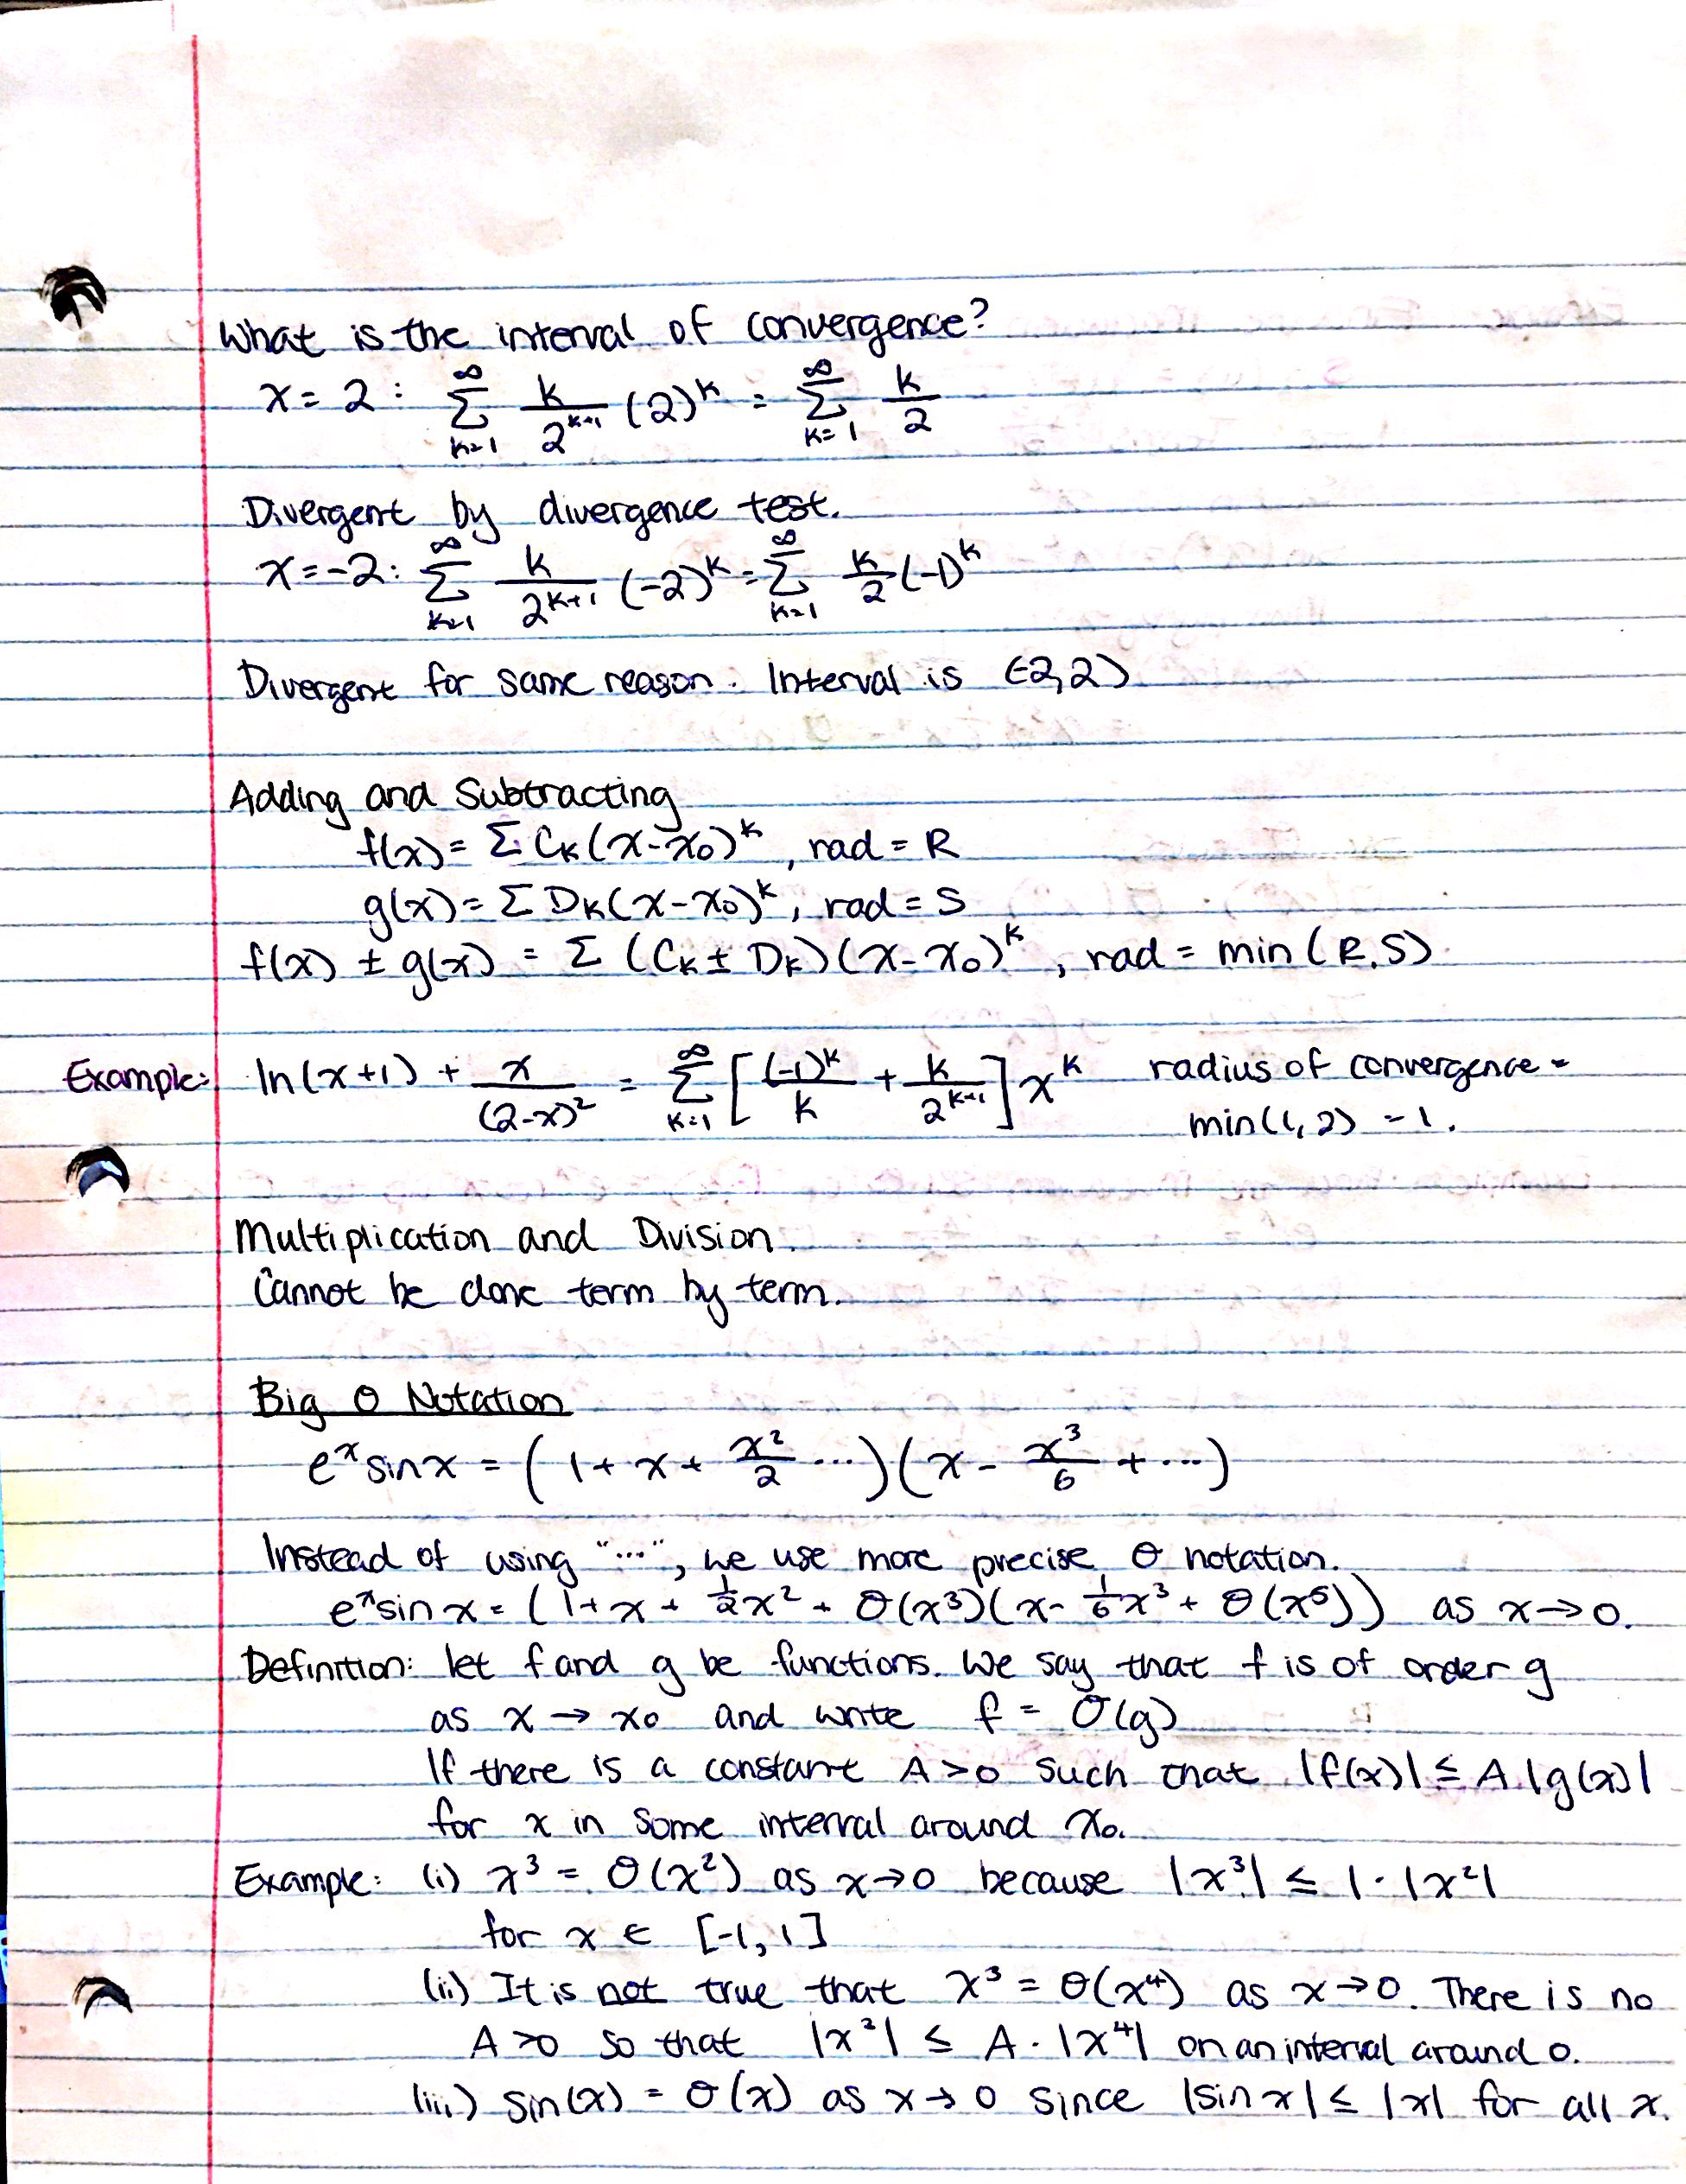 What is the interval of convergence?
x = 2 : ∞Σk=1 k/2^(k+1) (2)^k = ∞Σk=1 k/2
Divergent by divergence test.
x = -2 : ∞Σk=1 k/2^(k+1) (-2)^k = ∞Σk=1 k/2 (-1)^k
Divergent for same reason. Interval is (-2,2)
Adding and Subtracting
f(x) = Σ Ck(x-x₀)^k , rad = R
g(x) = Σ Dk(x-x₀)^k , rad = S
f(x) ± g(x) = Σ (Ck ± Dk)(x-x₀)^k , rad = min(R,S)
Example: ln(x+1) + x/(2-x)² = ∞Σk=1 [(-1)^k/k + k/2^(k+1)] x^k radius of convergence =
min(1, 2) = 1.
Multiplication and Division
Cannot be done term by term.
Big O Notation
e^x sinx = (1 + x + x²/2 ...)(x - x³/6 + ...)
Instead of using "...", we use more precise O notation.
e^x sin x = (1 + x + 1/2x² + O(x³)(x - 1/6x³ + O(x⁵)) as x→0.
Definition: let f and g be functions. We say that f is of order g
as x → x₀ and write f = O(g)
If there is a constant A>0 such that |f(x)| ≤ A |g(x)|
for x in some interval around x₀.
Example: (i) x³ = O(x²) as x→0 because |x³| ≤ 1·|x²|
for x ∈ [-1, 1]
(ii) It is not true that x³ = O(x⁴) as x→0. There is no
A>0 so that |x³| ≤ A·|x⁴| on an interval around 0.
(iii) sin(x) = O(x) as x→0 since |sin x| ≤ |x| for all x.